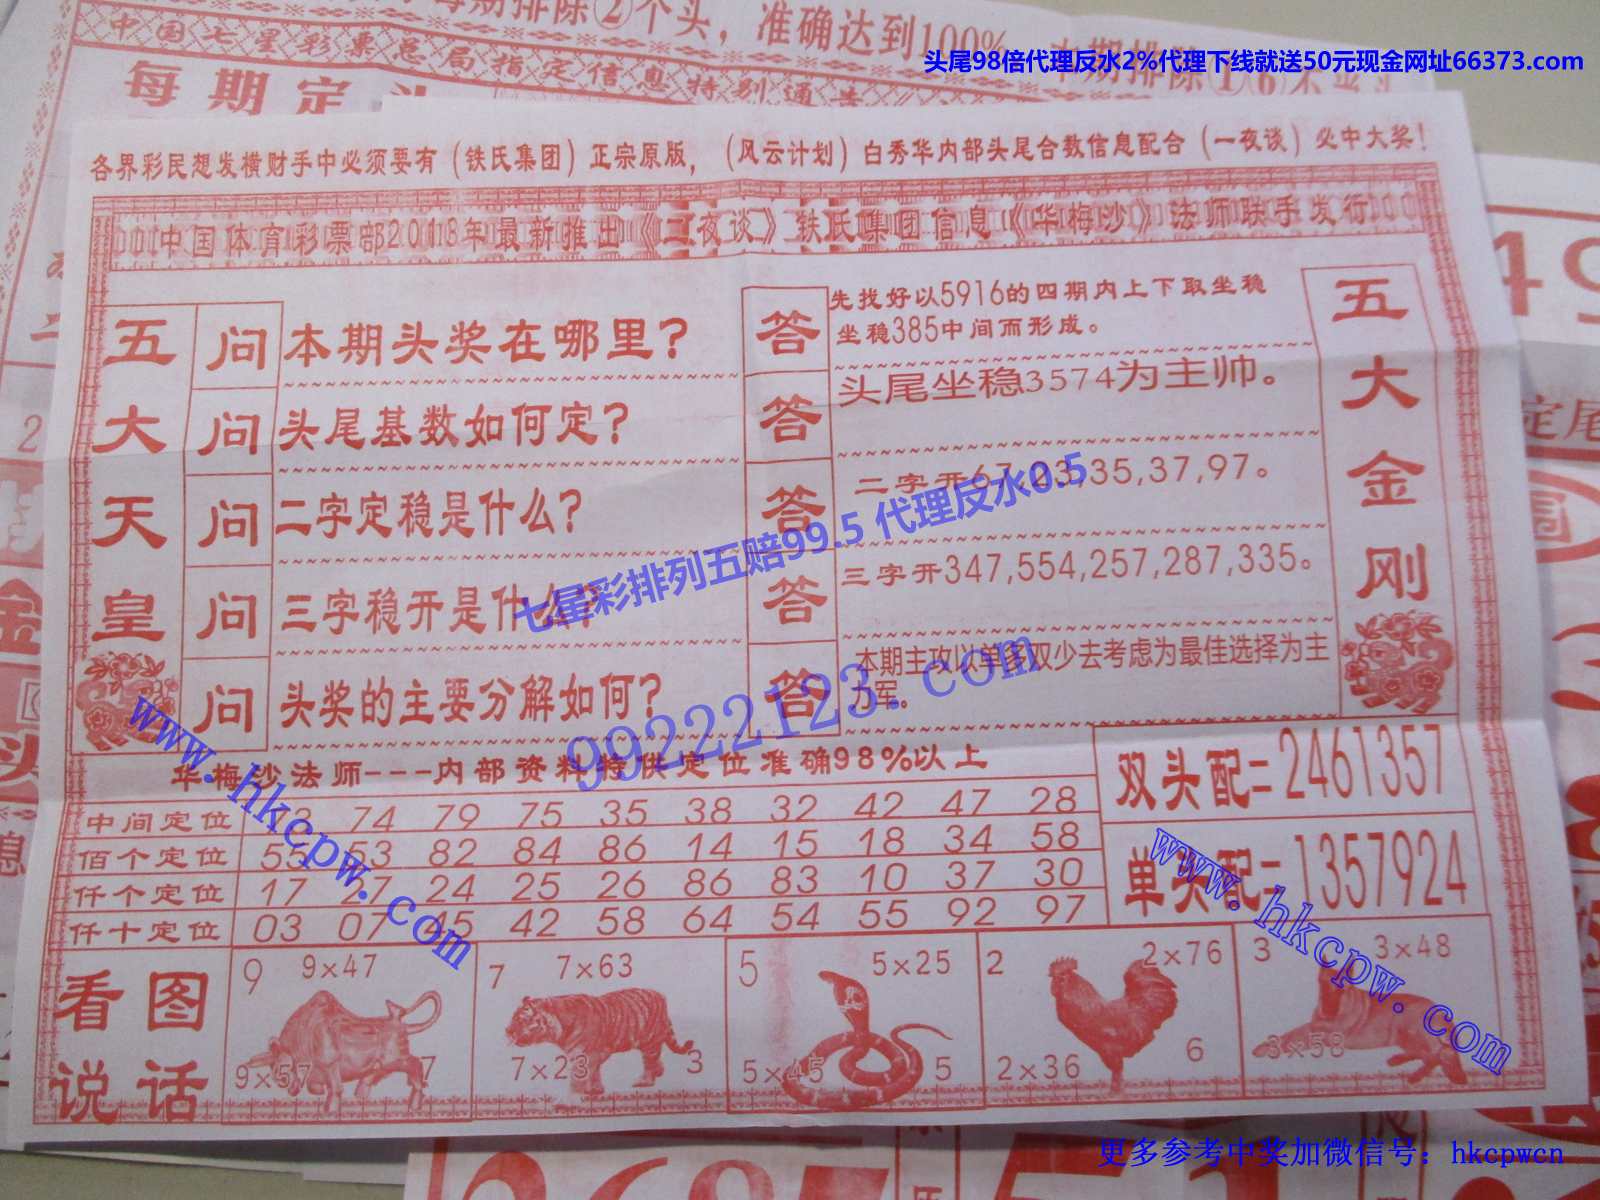 每期排除②个头，准确达到100%
中国七星彩票总局指定信息特别通告
头尾98倍代理反水2%代理下线就送50元现金网址66373.com
每期定头
各界彩民想发横财手中必须要有（铁氏集团）正宗原版，（风云计划）白秀华内部头尾合数信息配合（一夜谈）必中大奖！
中国体育彩票部2018年最新推出《二夜谈》铁氏集团信息《华梅沙》法师联手发行
五大天皇
问 本期头奖在哪里？
答 先找好以5916的四期内上下取坐稳
坐稳385中间而形成。
问 头尾基数如何定？
答 头尾坐稳3574为主帅。
问 二字定稳是什么？
答 二字开67,23,35,37,97。
问 三字稳开是什么？
答 三字开347,554,257,287,335。
问 头奖的主要分解如何？
答 本期主攻以单多双少去考虑为最佳选择为主
力军。
五大金刚
七星彩排列五赔99.5 代理反水0.5
99222123.com
www.hkcpw.com
华梅沙法师---内部资料特供定位准确98%以上
中间定位 74 79 75 35 38 32 42 47 28
佰个定位 55 53 82 84 86 14 15 18 34 58
仟个定位 17 27 24 25 26 86 83 10 37 30
仟十定位 03 07 45 42 58 64 54 55 92 97
双头配=2461357
单头配=1357924
www.hkcpw.com
看图
说话
9 9×47
9×57 7
7 7×63
7×23 3
5 5×25
5×45 5
2 2×76
2×36 6
3 3×48
3×58
更多参考中奖加微信号：hkcpwcn